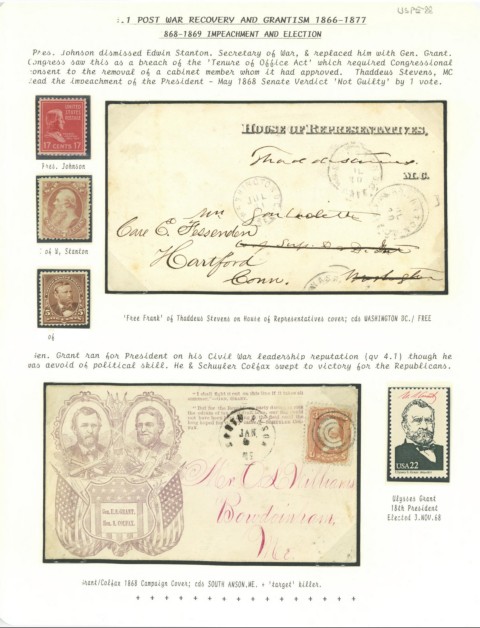 USPS-88
.1 POST WAR RECOVERY AND GRANTISM 1866-1877
868-1869 IMPEACHMENT AND ELECTION
Pres. Johnson dismissed Edwin Stanton. Secretary of War, & replaced him with Gen. Grant.
Congress saw this as a breach of the 'Tenure of Office Act' which required Congressional
consent to the removal of a cabinet member whom it had approved. Thaddeus Stevens, MC
lead the impeachment of the President - May 1868 Senate Verdict 'Not Guilty' by 1 vote.
17 CENTS 17
Pres. Johnson
HOUSE OF REPRESENTATIVES,
Thaddeus Stevens
M.C.
JUL
FREE
Care E. Fessenden
Hartford
Conn.
Washington
of W, Stanton
5
of
'Free Frank' of Thaddeus Stevens on House of Representatives cover; cds WASHINGTON DC./ FREE
Gen. Grant ran for President on his Civil War leadership reputation (qv 4.1) though he
was devoid of political skill. He & Schuyler Colfax swept to victory for the Republicans.
SOUTH ANSON
JAN
Gen. U.S. GRANT,
Hon. S. COLFAX.
Mr C Williams
Bowdoinham
Me.
USA22
Ulysses Grant
18th President
Elected 3.NOV.68
Grant/Colfax 1868 Campaign Cover; cds SOUTH ANSON,ME. + 'target' killer.
+ + + + + + + + + + + + + + + +